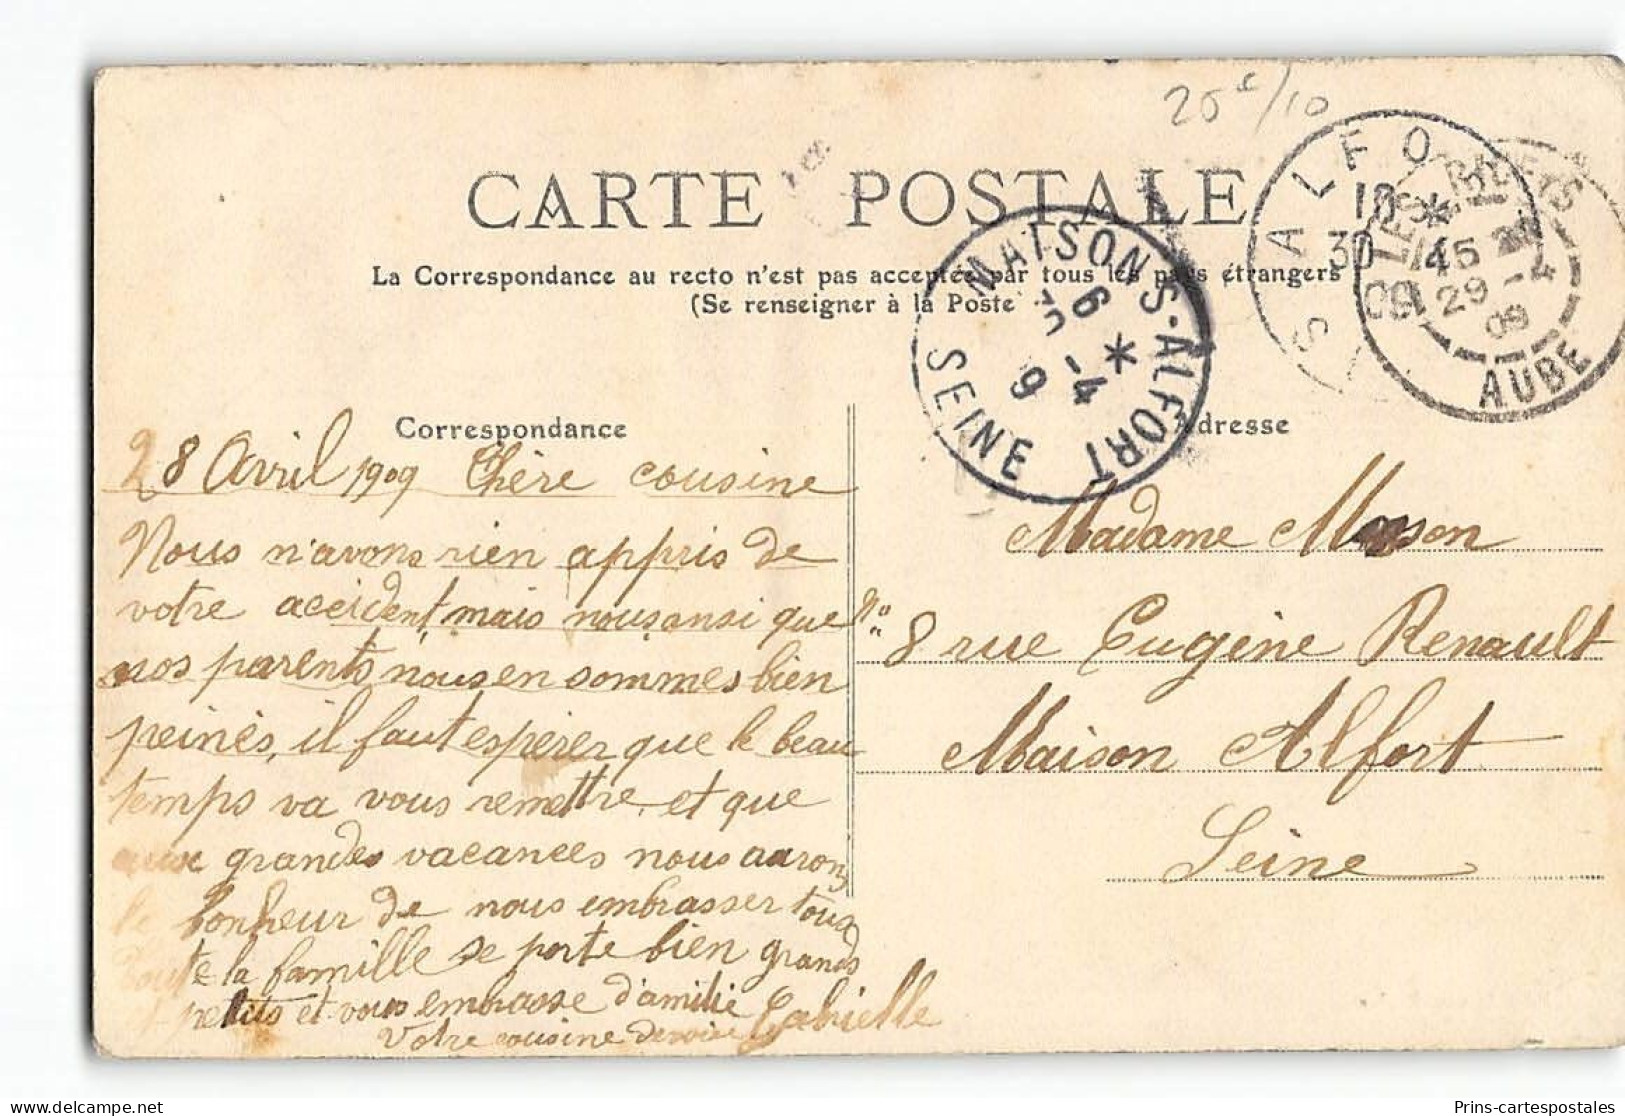 25c/10
CARTE POSTALE
La Correspondance au recto n'est pas acceptée par tous les pays étrangers
(Se renseigner à la Poste
MAISONS-ALFORT
6
-4
9
SEINE
SALFO
10
30
09
LES
45
29-4
09
AUBE
Correspondance
Adresse
28 Avril 1909 Chère cousine
Nous n'avons rien appris de
votre aceident, mais nous ansi que
nos parents nous en sommes bien
peinés, il faut espérer que le beau
temps va vous remettre, et que
aux grandes vacances nous aurons
le bonheur de nous embrasser tous
Toute la famille se porte bien grands
et petits et vous embrasse d'amitié
Votre cousine Gabielle
Madame Masson
No 8 rue Eugène Renault
Maison Alfort
Seine
Prins-cartespostales
www.delcampe.net